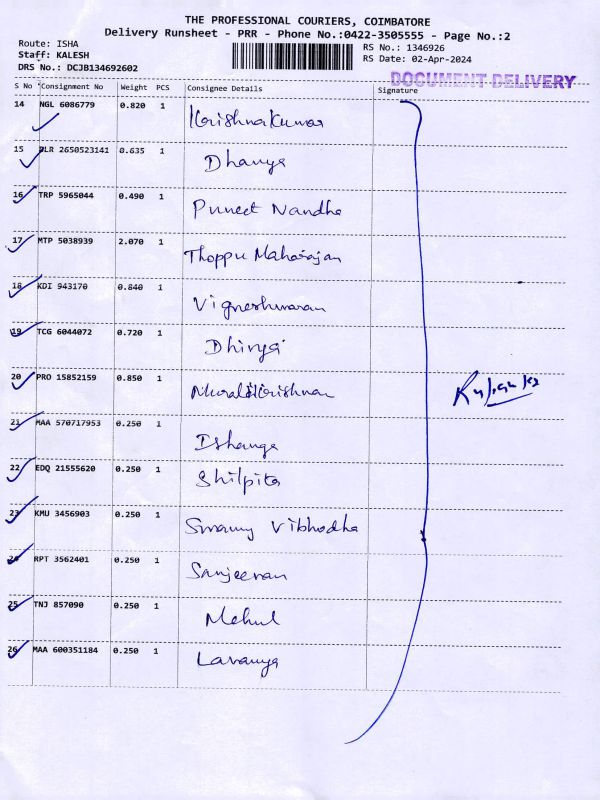 THE PROFESSIONAL COURIERS, COIMBATORE
Delivery Runsheet - PRR - Phone No.:0422-3505555 - Page No.:2
Route: ISHA
Staff: KALESH
DRS No.: DCJB134692602
RS No.: 1346926
RS Date: 02-Apr-2024
DOCUMENT DELIVERY
S No Consignment No Weight PCS Consignee Details Signature
14 NGL 6086779 0.820 1 Krishnakumar
15 BLR 2650523141 0.635 1 Dhanya
16 TRP 5965044 0.490 1 Puneet Nandha
17 MTP 5038939 2.070 1 Thoppu Maharajan
18 KDI 943170 0.840 1 Vigneshwaran
19 TCG 6044072 0.720 1 Dhivya
20 PRO 15852159 0.850 1 Muralikrishnan
21 MAA 570717953 0.250 1 Ishanga
22 EDQ 21555620 0.250 1 Shilpita
23 KMU 3456903 0.250 1 Swamy Vibhodha
24 RPT 3562401 0.250 1 Sanjeevan
25 TNJ 857090 0.250 1 Mehul
26 MAA 600351184 0.250 1 Lavanya